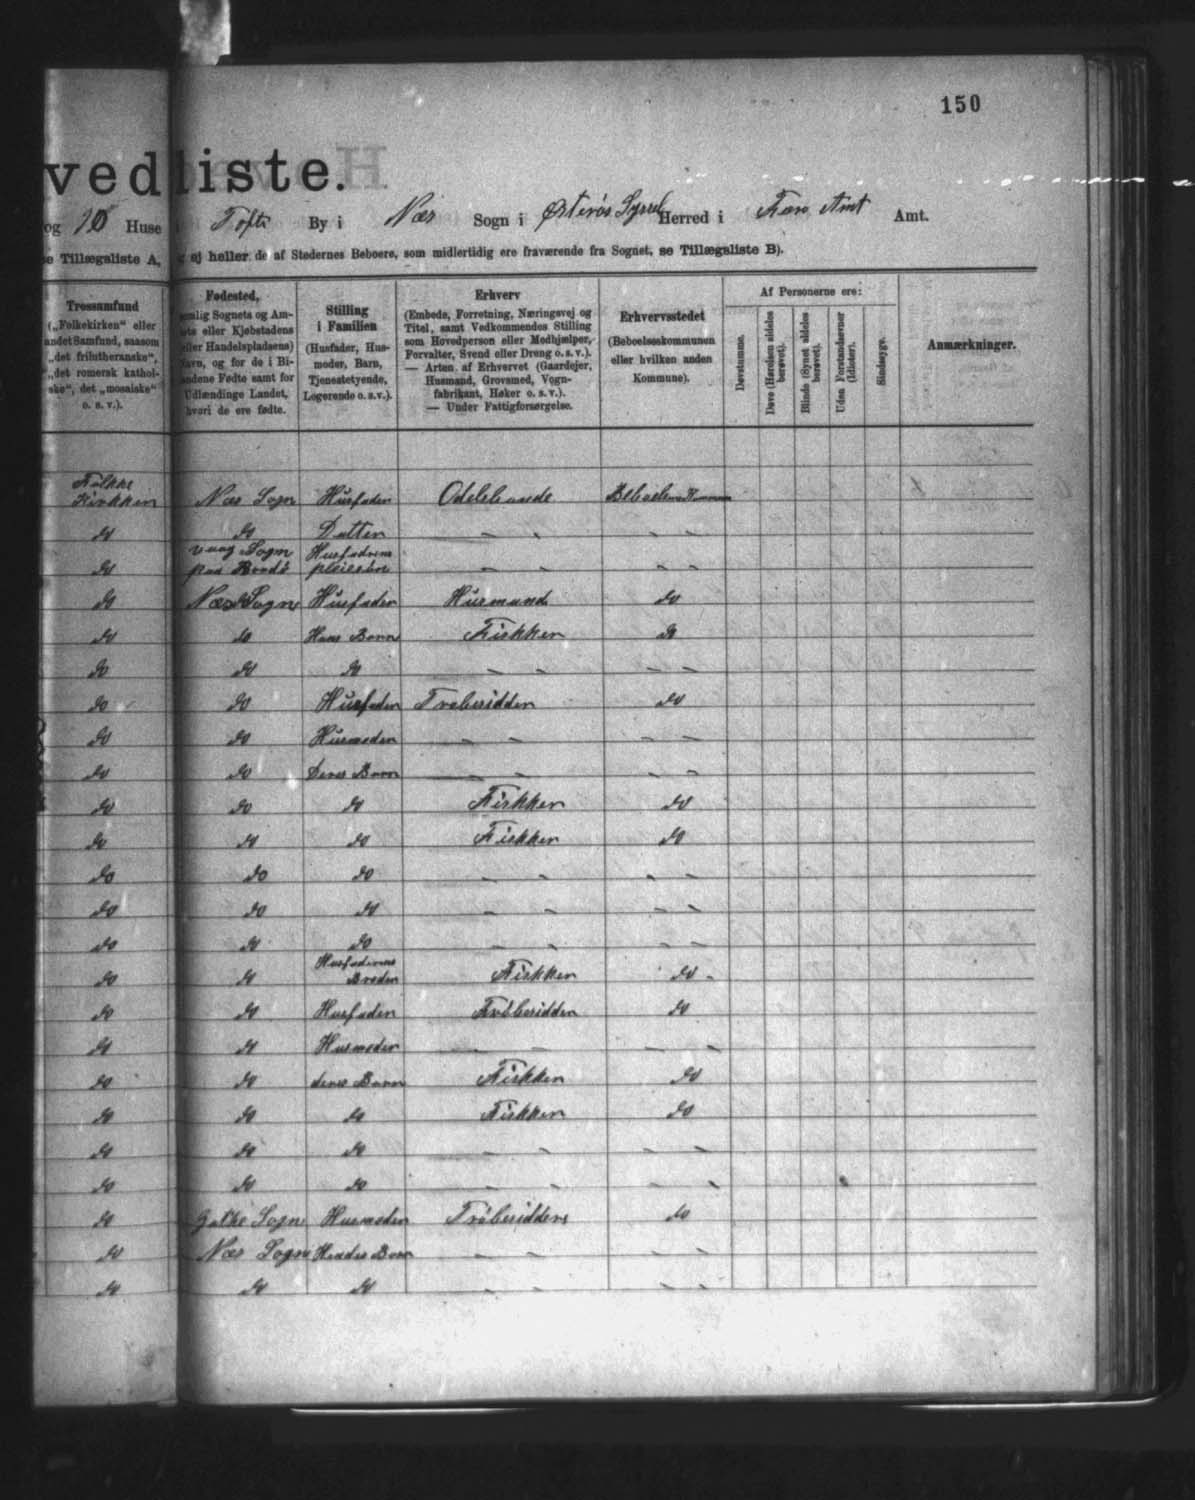 150
vedliste.
og 10 Huse i Tofte By i Næs Sogn i Østerøs Syssel Herred i Færø Amt Amt.
se Tillægsliste A, og ej heller de af Stedernes Beboere, som midlertidig ere fraværende fra Sognet, se Tillægsliste B).
Trossamfund
(„Folkekirken“ eller
andet Samfund, saasom
„det frilutheranske“,
„det romersk kathol-
ske“, det „mosaiske“
o. s. v.).
Fødested,
nemlig Sognets og Am-
tets eller Kjøbstadens
(eller Handelspladsens)
Navn, og for de i Bi-
landene Fødte samt for
Udlændinge Landet,
hvori de ere fødte.
Stilling
i Familien
(Husfader, Hus-
moder, Barn,
Tjenestetyende,
Logerende o. s. v.).
Erhverv
(Embede, Forretning, Næringsvej og
Titel, samt Vedkommendes Stilling
som Hovedperson eller Medhjælper,
Forvalter, Svend eller Dreng o. s. v.).
— Arten af Erhvervet (Gaardejer,
Husmand, Grovsmed, Vogn-
fabrikant, Høker o. s. v.).
— Under Fattigforsørgelse.
Erhvervsstedet
(Beboelseskommunen
eller hvilken anden
Kommune).
Af Personerne ere:
Døvstumme.
Døve (Hørelsen aldeles
berøvet).
Blinde (Synet aldeles
berøvet).
Uden Forstandsevner
(Idioter).
Sindssyge.
Anmærkninger.
Folkke
Kirkken Næs Sogn Husfader Odelsbonde
do do Datter — — — —
Vaag Sogn Husfaderens
do paa Bordø pleiesøn — — — —
do Næs Sogn Husfader Husmand do
do do Hans Barn Fiskker do
do do do — — — —
do do Husfader Træbesidder do
do do Husmoder — — — —
do do Deres Barn — — — —
do do do Fiskker do
do do do Fiskker do
do do do — — — —
do do do — — — —
do do do — — — —
Husfaderens
do do Broder Fiskker do
do do Husfader Trøbesidder do
do do Husmoder — — — —
do do deres Barn Fiskker do
do do do Fiskker do
do do do — — — —
do do do — — — —
do Gøthe Sogn Husmoder Trøbesidders do
do Næs Sogn Hendes Barn — — — —
do do do — — — —